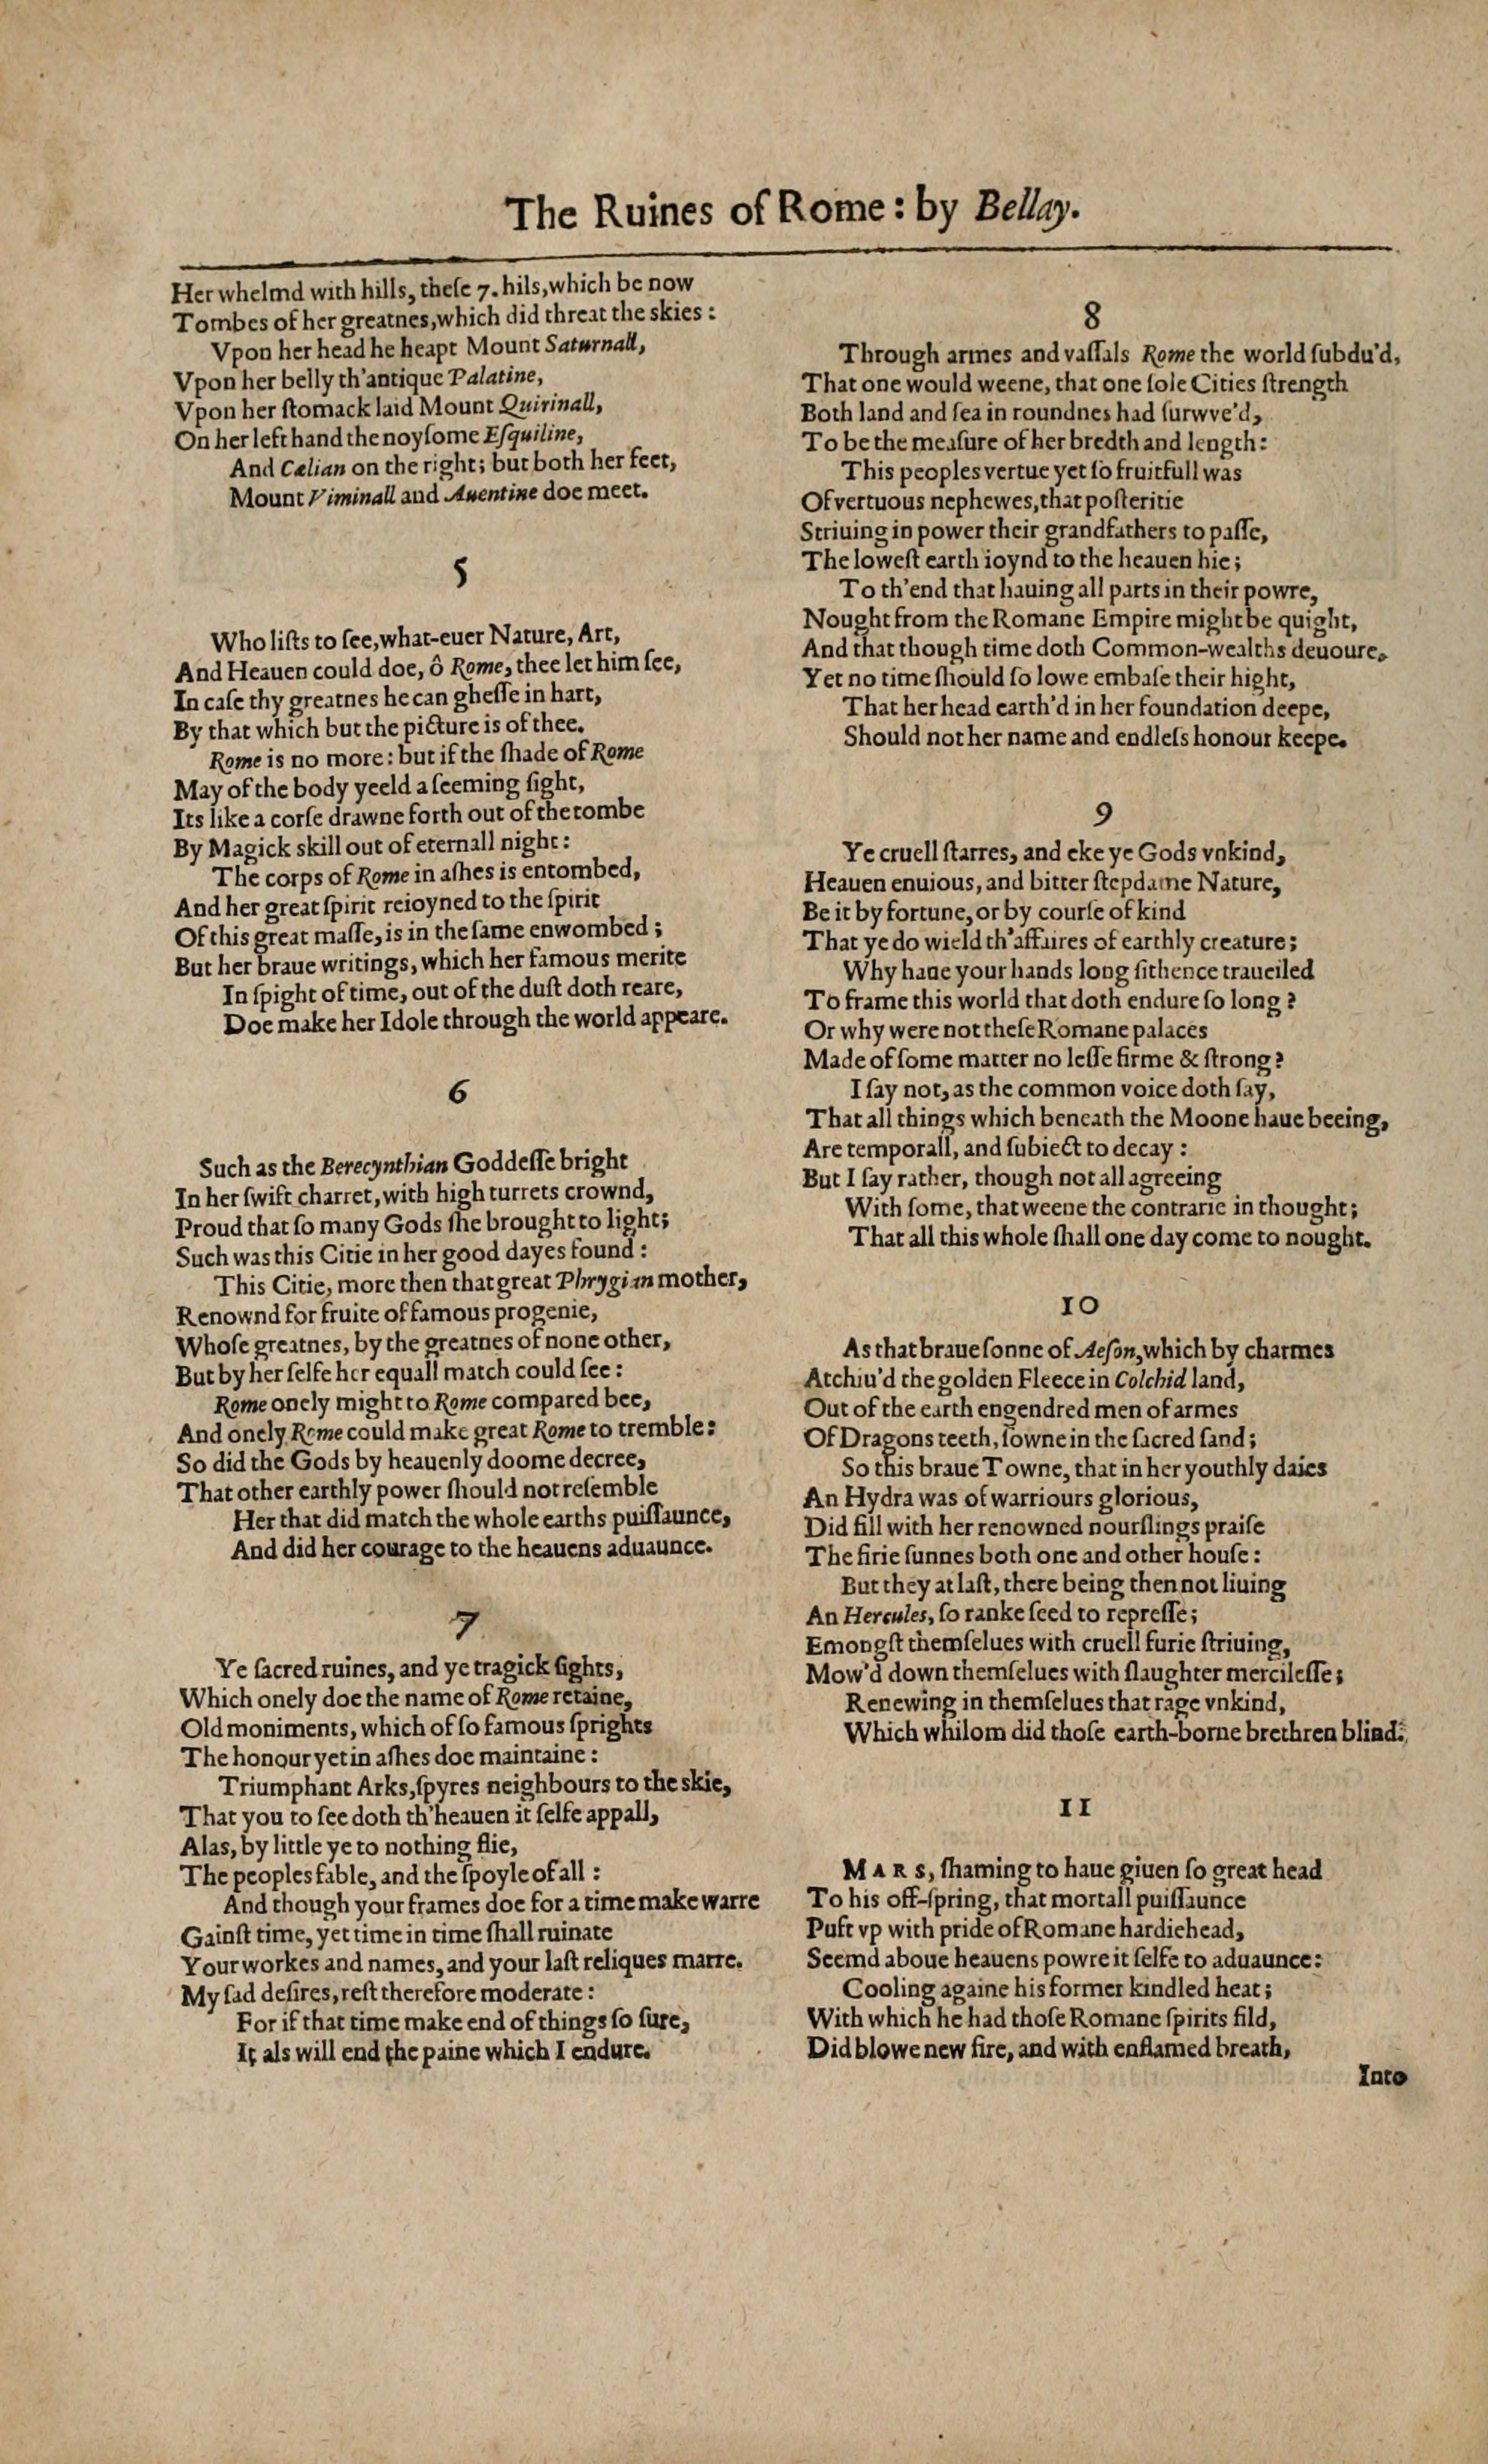 The Ruines of Rome: by Bellay.
Her whelmd with hills, theſe 7. hils, which be now
Tombes of her greatnes, which did threat the skies:
Vpon her head he heapt Mount Saturnall,
Vpon her belly th'antique Palatine,
Vpon her ſtomack laid Mount Quirinall,
On her left hand the noyſome Eſquiline,
And Cælian on the right; but both her feet,
Mount Viminall and Auentine doe meet.
5
Who liſts to ſee, what-euer Nature, Art,
And Heauen could doe, ô Rome, thee let him ſee,
In caſe thy greatnes he can gheſſe in hart,
By that which but the picture is of thee.
Rome is no more: but if the ſhade of Rome
May of the body yeeld a ſeeming ſight,
Its like a corſe drawne forth out of the tombe
By Magick skill out of eternall night:
The corps of Rome in aſhes is entombed,
And her great ſpirit reioyned to the ſpirit
Of this great maſſe, is in the ſame enwombed;
But her braue writings, which her famous merite
In ſpight of time, out of the duſt doth reare,
Doe make her Idole through the world appeare.
6
Such as the Berecynthian Goddeſſe bright
In her ſwift charret, with high turrets crownd,
Proud that ſo many Gods ſhe brought to light;
Such was this Citie in her good dayes found:
This Citie, more then that great Phrygian mother,
Renownd for fruite of famous progenie,
Whoſe greatnes, by the greatnes of none other,
But by her ſelfe her equall match could ſee:
Rome onely might to Rome compared bee,
And onely Rome could make great Rome to tremble:
So did the Gods by heauenly doome decree,
That other earthly power ſhould not reſemble
Her that did match the whole earths puiſſaunce,
And did her courage to the heauens aduaunce.
7
Ye ſacred ruines, and ye tragick ſights,
Which onely doe the name of Rome retaine,
Old moniments, which of ſo famous ſprights
The honour yet in aſhes doe maintaine:
Triumphant Arks, ſpyres neighbours to the skie,
That you to ſee doth th'heauen it ſelfe appall,
Alas, by little ye to nothing flie,
The peoples fable, and the ſpoyle of all:
And though your frames doe for a time make warre
Gainſt time, yet time in time ſhall ruinate
Your workes and names, and your laſt reliques marre.
My ſad deſires, reſt therefore moderate:
For if that time make end of things ſo ſure,
It als will end the paine which I endure.
8
Through armes and vaſſals Rome the world ſubdu'd,
That one would weene, that one ſole Cities ſtrength
Both land and ſea in roundnes had ſurwve'd,
To be the meaſure of her bredth and length:
This peoples vertue yet ſo fruitfull was
Of vertuous nephewes, that poſteritie
Striuing in power their grandfathers to paſſe,
The loweſt earth ioynd to the heauen hie;
To th'end that hauing all parts in their powre,
Nought from the Romane Empire might be quight,
And that though time doth Common-wealths deuoure,
Yet no time ſhould ſo lowe embaſe their hight,
That her head earth'd in her foundation deepe,
Should not her name and endleſs honour keepe.
9
Ye cruell ſtarres, and eke ye Gods vnkind,
Heauen enuious, and bitter ſtepdame Nature,
Be it by fortune, or by courſe of kind
That ye do wield th'affaires of earthly creature;
Why haue your hands long ſithence traueiled
To frame this world that doth endure ſo long?
Or why were not theſe Romane palaces
Made of ſome matter no leſſe firme & ſtrong?
I ſay not, as the common voice doth ſay,
That all things which beneath the Moone haue beeing,
Are temporall, and ſubiect to decay:
But I ſay rather, though not all agreeing
With ſome, that weene the contrarie in thought;
That all this whole ſhall one day come to nought.
10
As that braue ſonne of Aeſon, which by charmes
Atchiu'd the golden Fleece in Colchid land,
Out of the earth engendred men of armes
Of Dragons teeth, ſowne in the ſacred ſand;
So this braue Towne, that in her youthly daies
An Hydra was of warriours glorious,
Did fill with her renowned nourſlings praiſe
The firie ſunnes both one and other houſe:
But they at laſt, there being then not liuing
An Hercules, ſo ranke ſeed to repreſſe;
Emongſt themſelues with cruell furie ſtriuing,
Mow'd down themſelues with ſlaughter mercileſſe;
Renewing in themſelues that rage vnkind,
Which whilom did thoſe earth-borne brethren blind.
11
MARS, ſhaming to haue giuen ſo great head
To his off-ſpring, that mortall puiſſaunce
Puft vp with pride of Romane hardiehead,
Seemd aboue heauens powre it ſelfe to aduaunce:
Cooling againe his former kindled heat;
With which he had thoſe Romane ſpirits fild,
Did blowe new fire, and with enflamed breath,
Into